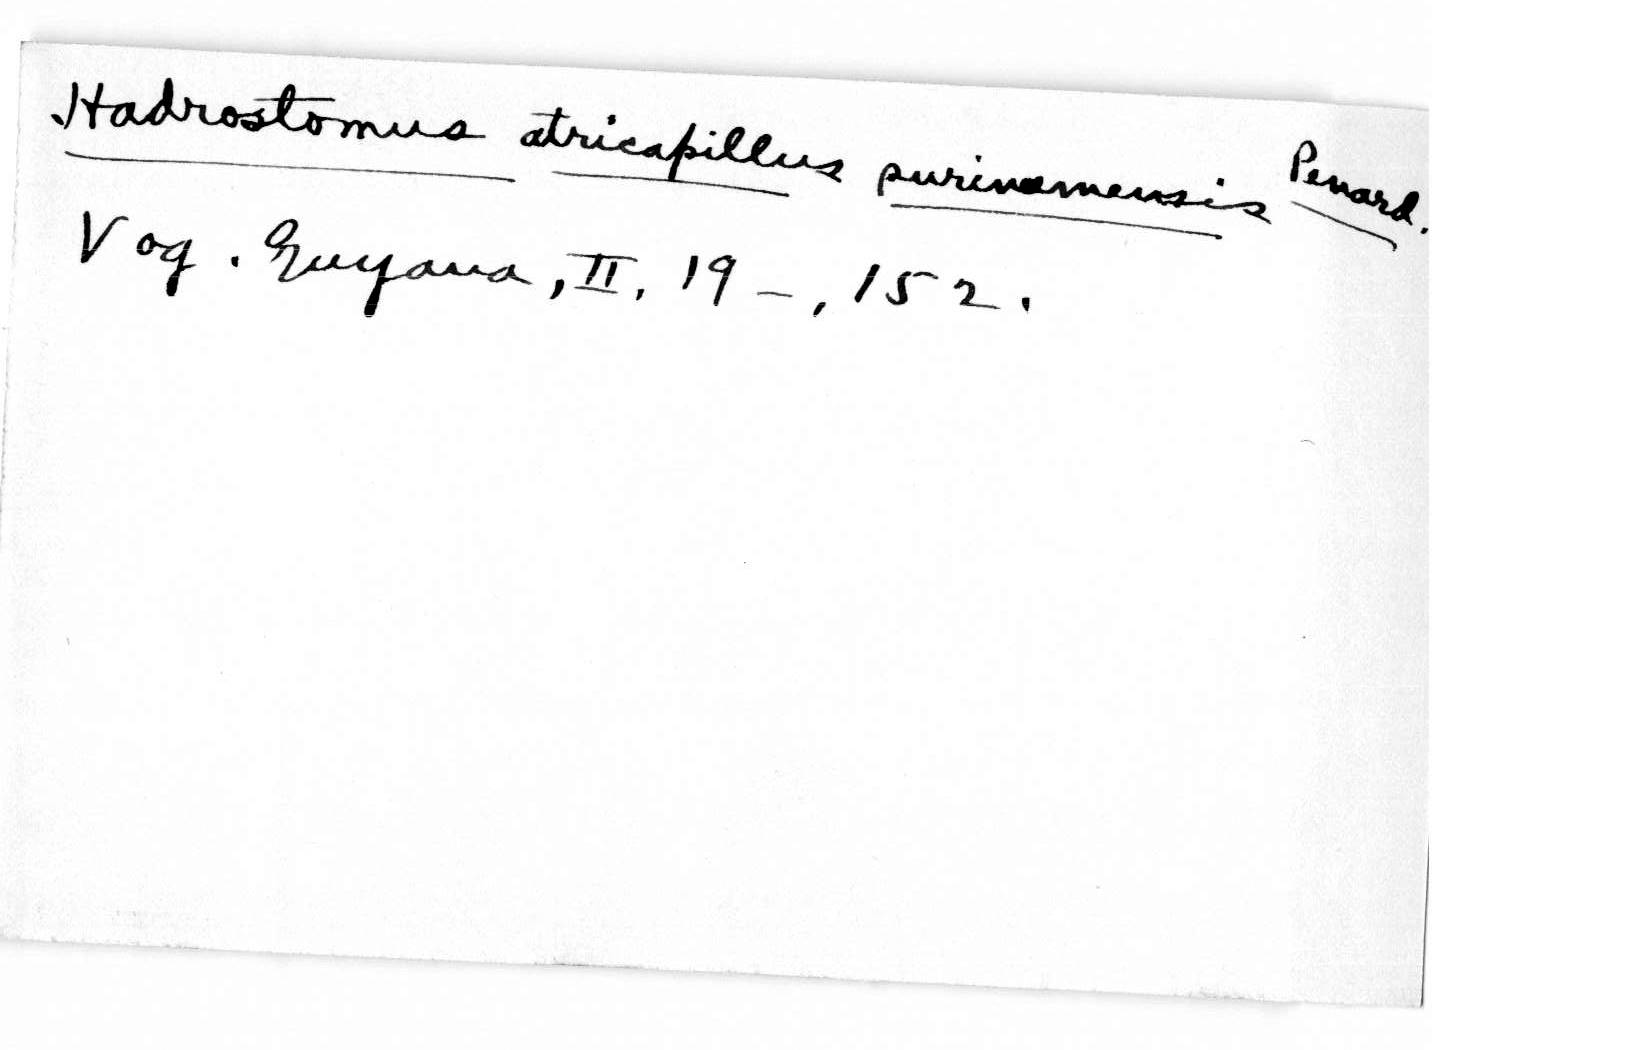 Hadrostomus atricapillus surinamensis Penard.
Vog. Guyana, II, 19–, 152.